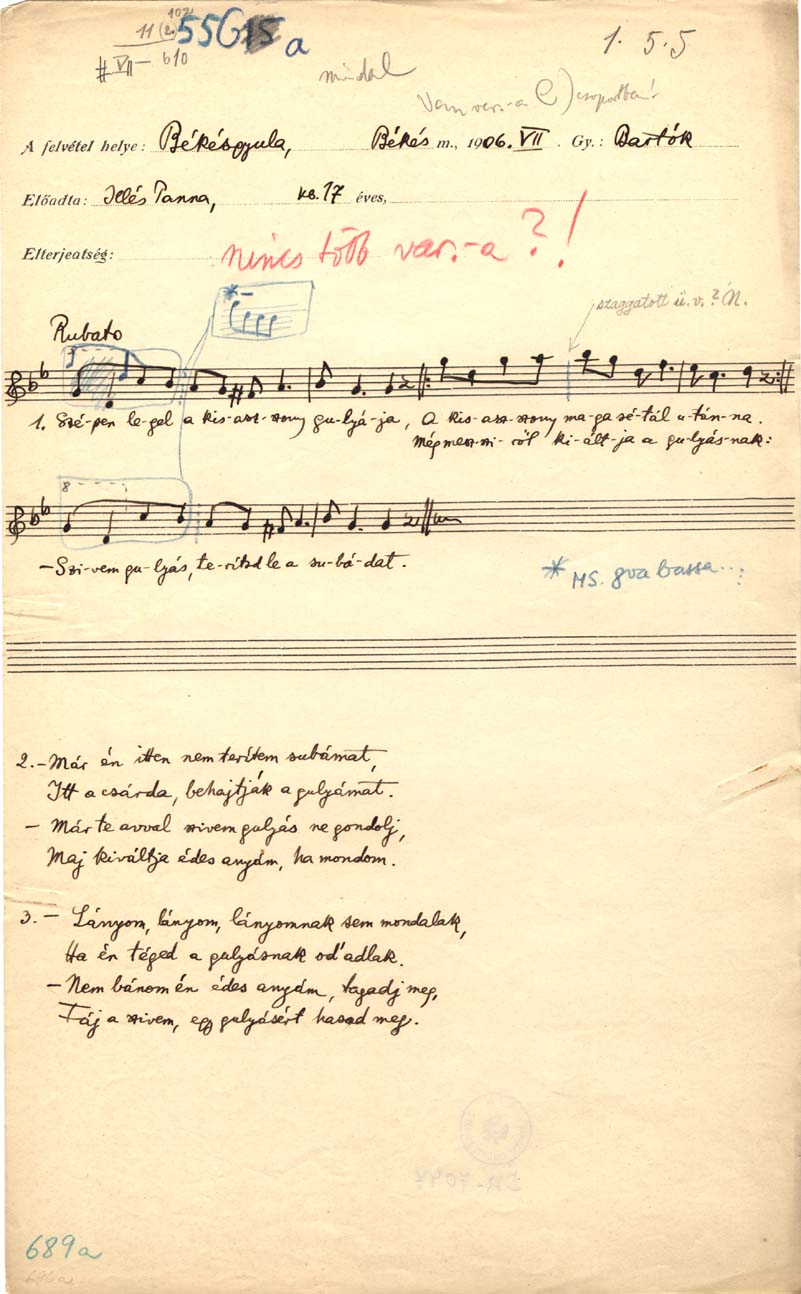 11 (2. 102
5515 a
1. 5.5
# VII — 610
mind al
Van var.-a C) csoportban!
A felvétel helye: Békésgyula, Békés m., 1906. VII. Gy.: Bartók
Előadta: Illés Panna, kb. 17 éves,
Elterjeatség: nincs több var.-a?!
szaggatott ü. v.? N.
Rubato
8
1. Szé-pen le-gel a kis-asz-szony gu-lyá-ja, A kis-asz-szony ma-ga sé-tál u-tán-na.
Mégmesz-szi-ről ki-ált-ja a gu-lyás-nak:
8
—Szi-vem gu-lyás, te-rítsd le a su-bá-dat.
* MS. 8va bassa...
2.—Már én itten nem terítem subámat,
Itt a csárda, behajtják a gulyámat.
— Már te avval szivem gulyás ne gondolj,
Maj kiváltja édes anyám, ha mondom.
3.— Lányom, lányom, lányomnak sem mondalak,
Ha én téged a gulyásnak od'adlak.
— Nem bánom én édes anyám, tagadj meg,
Fáj a szivem, egy gulyásért hasad meg.
689a
696a